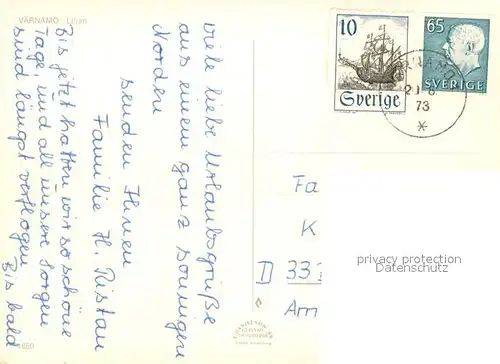 VÄRNAMO Liljan
viele liebe Urlaubsgrüße
aus einem ganz sonnigen
Norden
senden Ihnen
Familie H. Pistau
Bis jetzt hatten wir so schöne
Tage, und all unsere Sorgen
sind längst verflogen
Bis bald
10
Sverige
65
SVERIGE
73
Fa
K
D 337
Am
privacy protection
Datenschutz